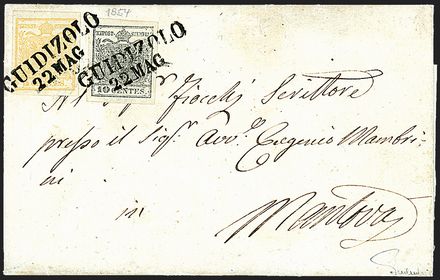 1854
GUIDIZOLO
22 MAG
GUIDIZOLO
22 MAG
10 CENTES.
Al Fiocchi Scrittore
presso il Sigr. Avvo. Eugenio Mambri-
ni
in
Mantova